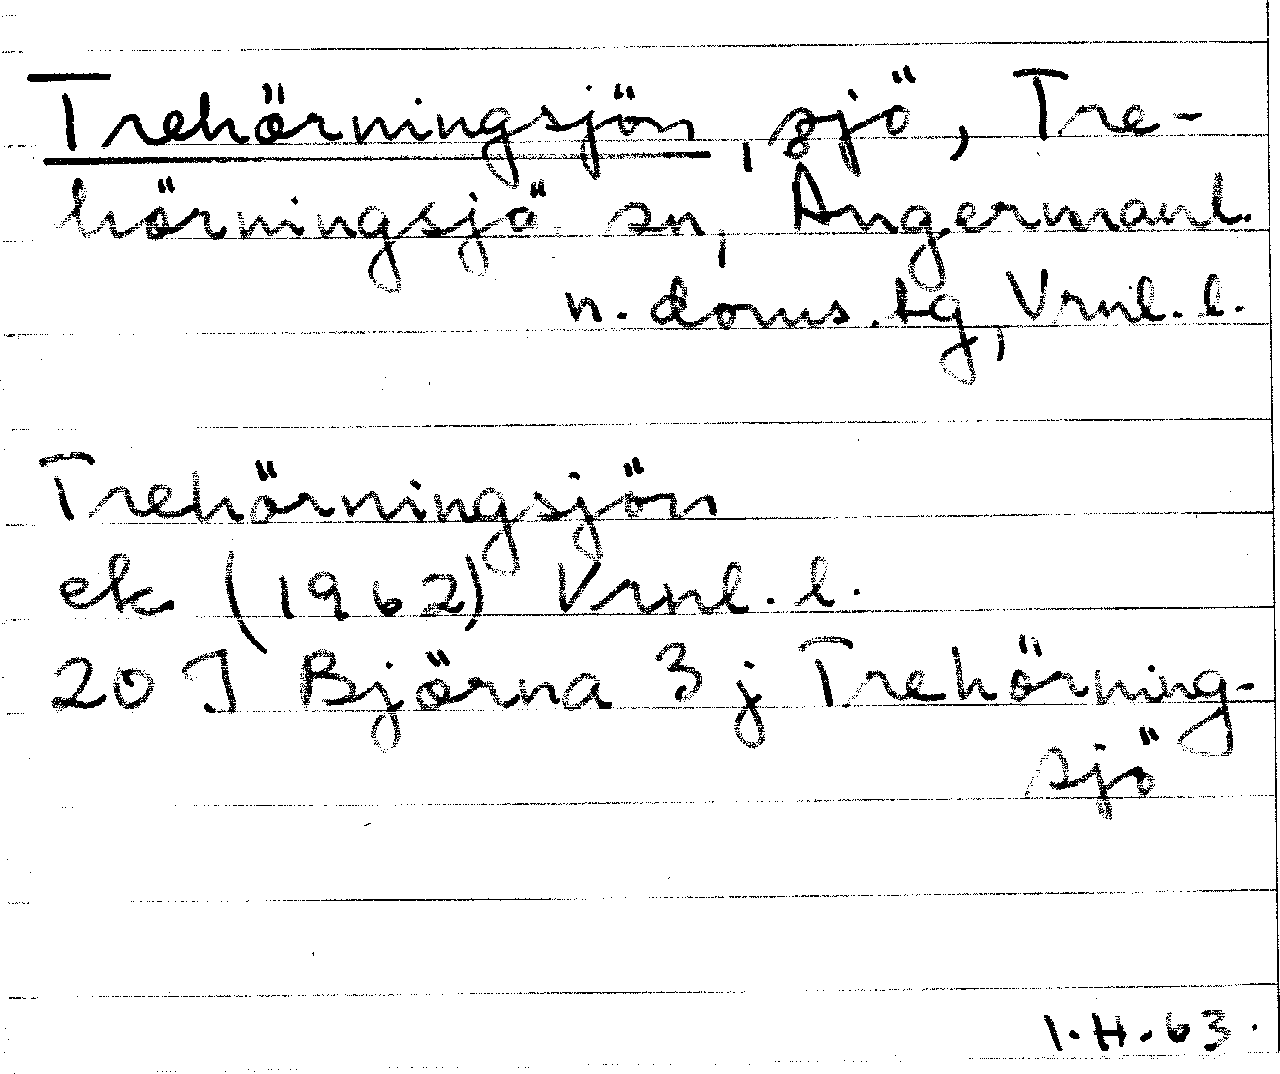 Trehörningsjön, sjö, Tre-
hörningsjö sn, Ångermanl.
n. doms.tg, Vrnl. l.
Trehörningsjön
ek (1962) Vrnl. l.
20 J Björna 3 j Trehörning-
sjö
I.H.63.